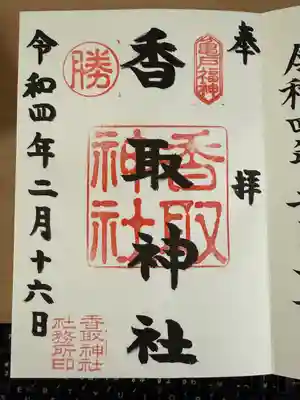 奉拝
亀戸福神
香取神社
香取
神社
勝
令和四年二月十六日
香取神社
社務所印